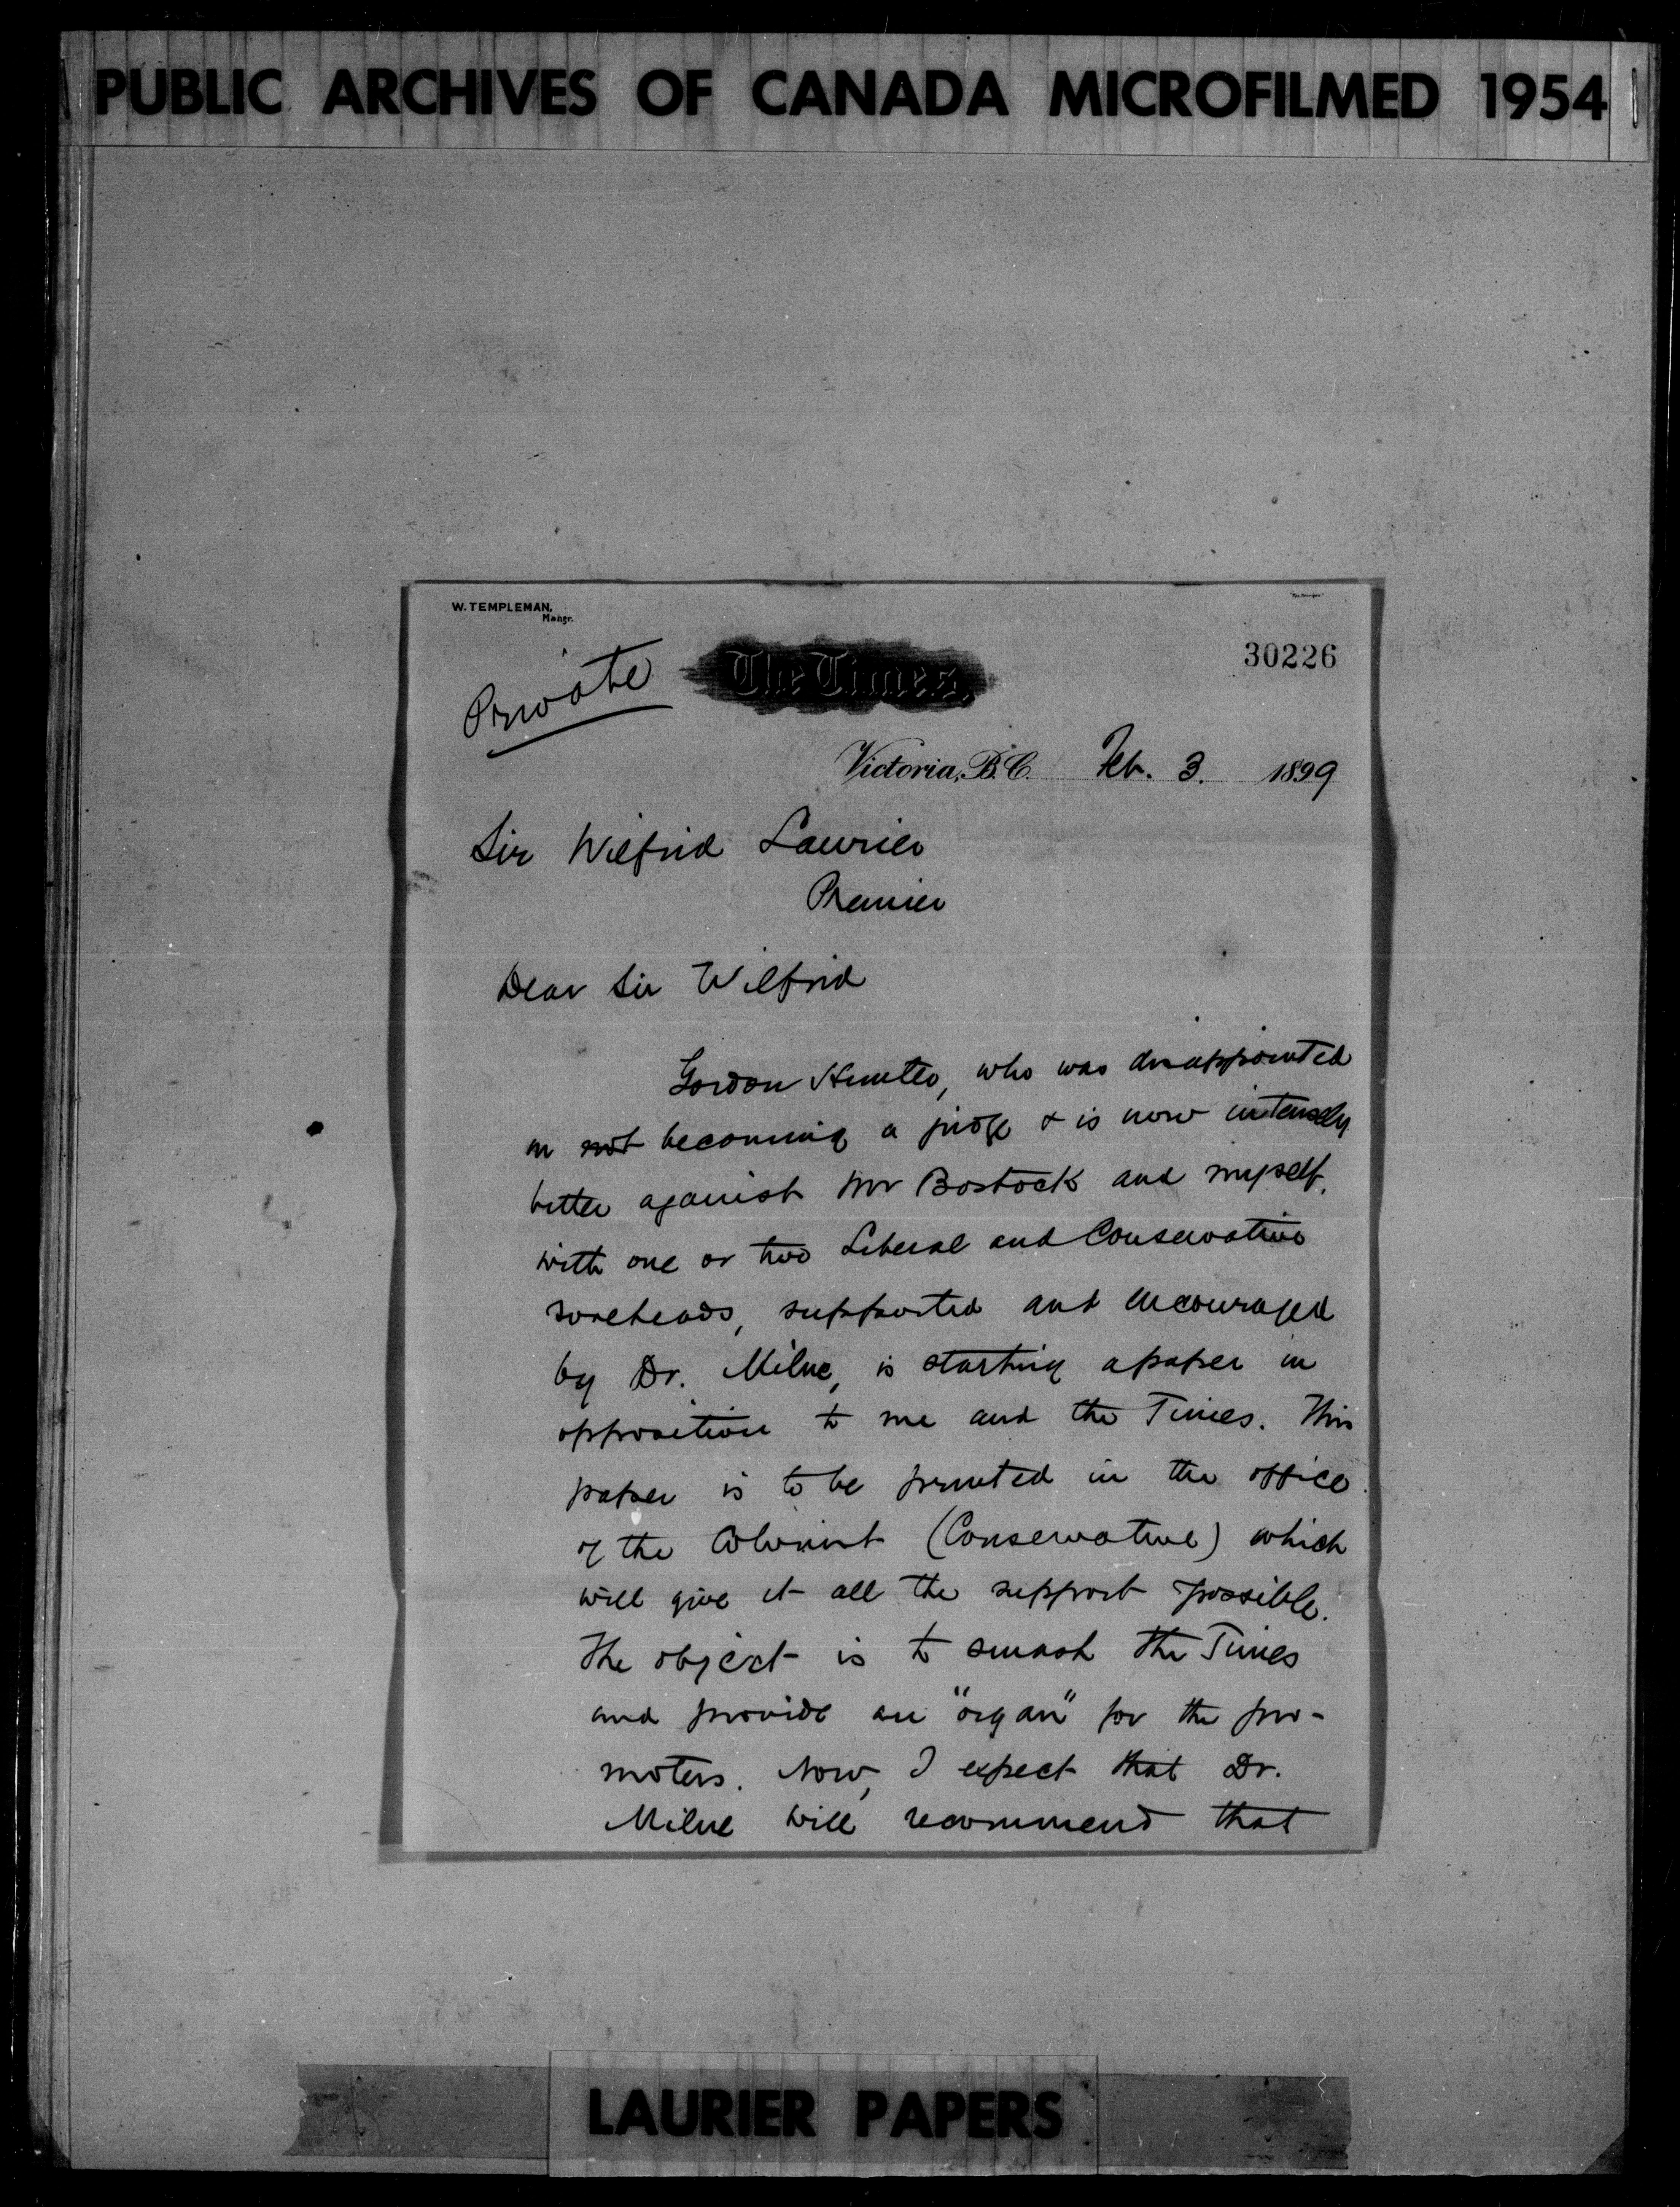 PUBLIC ARCHIVES OF CANADA MICROFILMED 1954
W. TEMPLEMAN,
Mangr.
30226
Private
The Times,
Victoria, B.C. Feb. 3. 1899
Sir Wilfrid Laurier
Premier
Dear Sir Wilfrid
Gordon Hunter, who was disappointed
in not becoming a judge & is now intensely
bitter against Mr Bostock and myself,
with one or two Liberal and Conservative
soreheads, supported and encouraged
by Dr. Milne, is starting a paper in
opposition to me and the Times. This
paper is to be printed in the office
of the Colonist (Conservative) which
will give it all the support possible.
The object is to smash the Times
and provide an "organ" for the pro-
moters. Now, I expect that Dr.
Milne will recommend that
LAURIER PAPERS